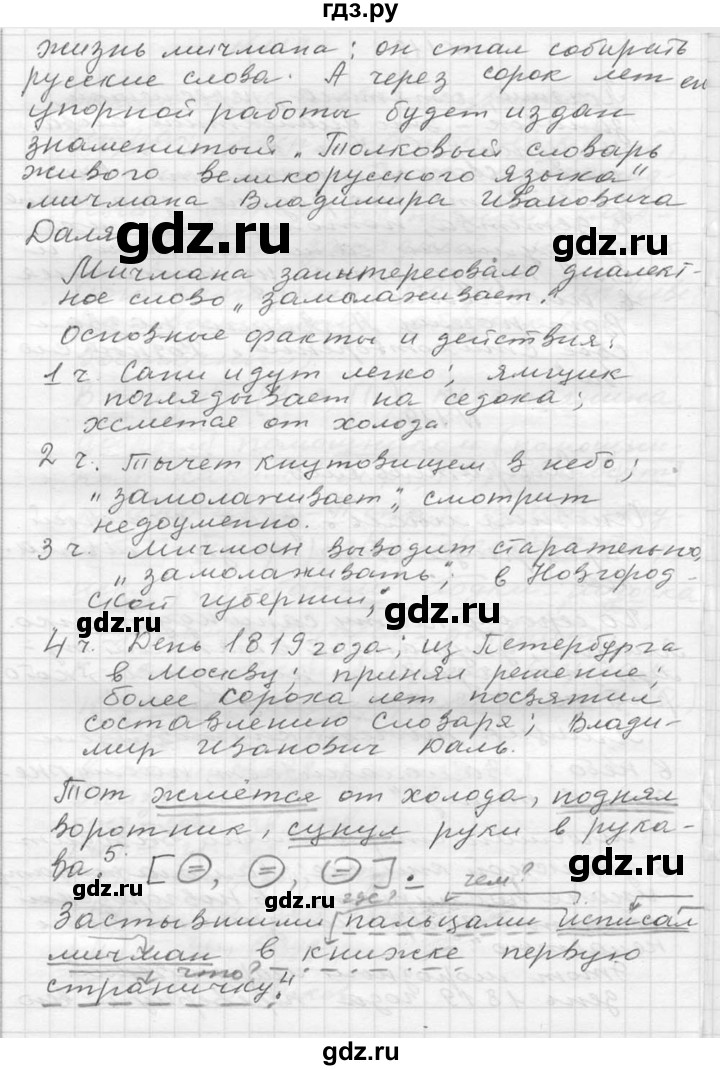 гдз.ру
жизнь мичмана: он стал собирать
русские слова. А через сорок лет ен
упорной работы будет издан
знаменитый „Толковый словарь
живого великорусского языка"
мичмана Владимира Ивановича
Даля
gdz.ru
gdz.ru
Мичмана заинтересовало диалект-
ное слово „замолаживает."
Основные факты и действия:
gdz.ru
1 ч. Сани идут легко; ямщик
поглядывает на седока;
жмется от холода.
2 ч. Тычет кнутовищем в небо;
„замолаживает", смотрит
недоуменно.
3 ч. Мичман выводит старательно,
„замолаживать"; в Новгород-
ской губернии;
gdz.ru
gdz.ru
4 ч. День 1819 года; из Петербурга
в Москву; принял решение;
более сорока лет посвятил
составлению словаря; Влади-
мир Иванович Даль.
Тот жмётся от холода, поднял
воротник, сунул руки в рука-
ва.⁵ [=, =, =].
gdz.ru
gdz.ru
где? чем?
Застывшими пальцами исписал
мичман в книжке первую
что?
страничку.⁴
gdz.ru
gdz.ru